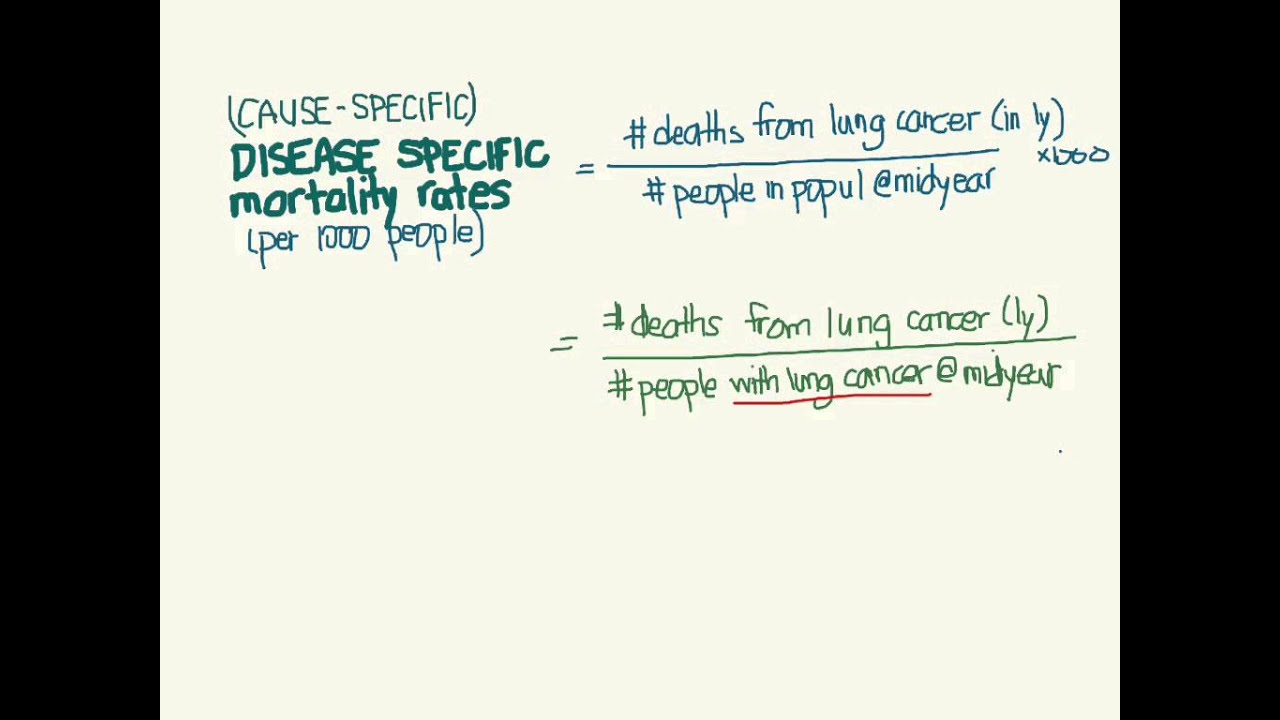 (CAUSE-SPECIFIC)
DISEASE SPECIFIC
mortality rates
(per 1000 people)
= #deaths from lung cancer (in 1y)
x1000
#people in popul @midyear
= #deaths from lung cancer (1y)
#people with lung cancer @midyear